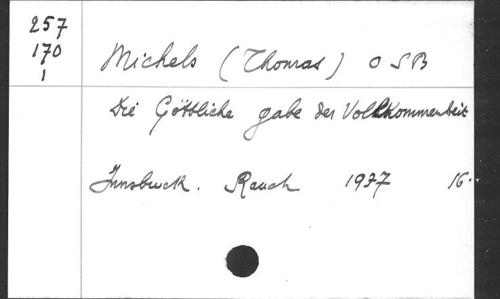 257
170
1
Michels (Thomas) O S B
Die Göttliche gabe der Vollkommenheit
Innsbruck. Rauch 1937 16.